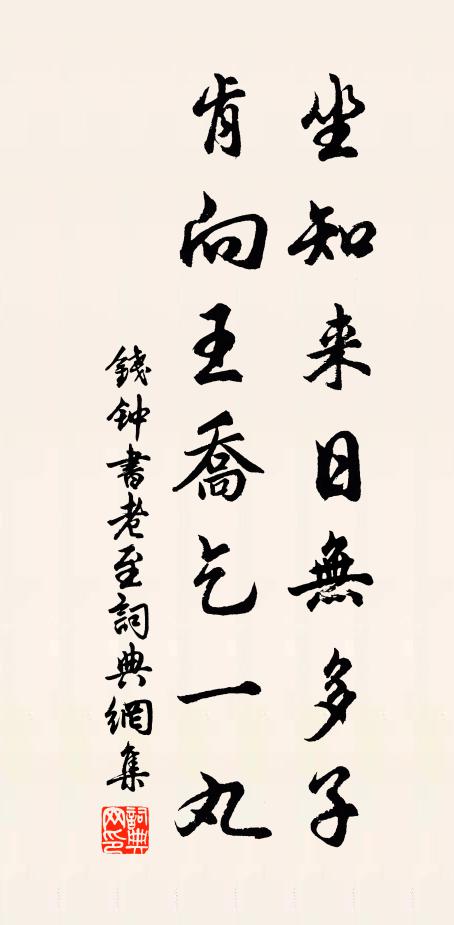 坐知来日無多子
肯向王喬乞一丸
錢钟書老至詞典網集
詞典网印